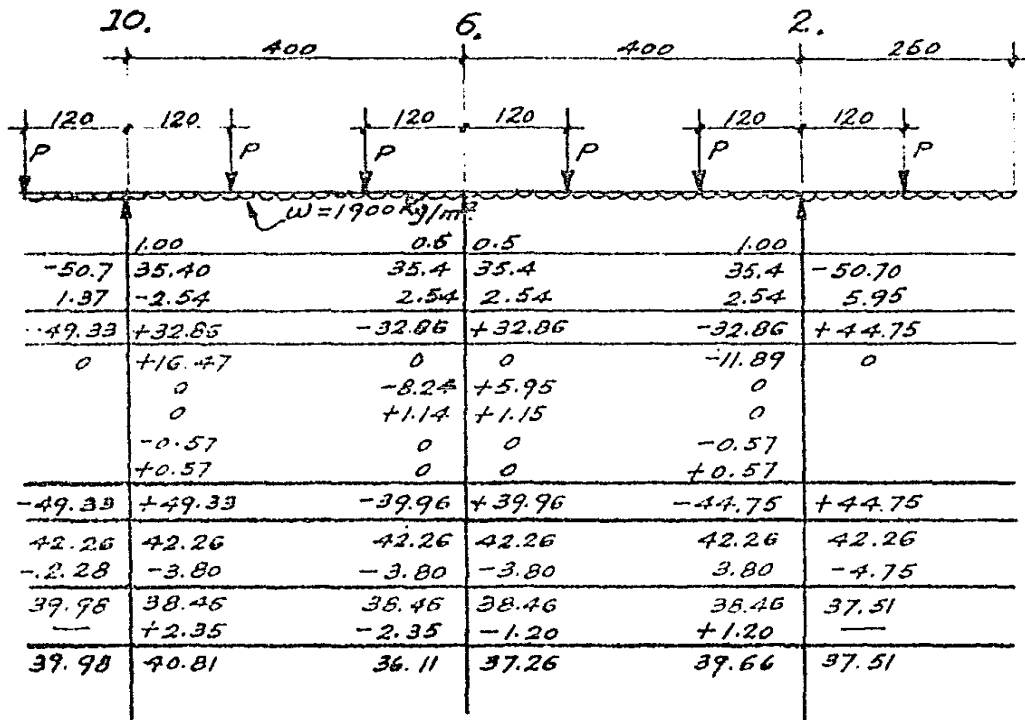 10. 6. 2.
400 400 250
120 120 120 120 120 120
P P P P P P
w=1900 kg/m²
1.00 0.5 0.5 1.00
-50.7 35.40 35.4 35.4 35.4 -50.70
1.37 -2.54 2.54 2.54 2.54 5.95
-49.33 +32.85 -32.86 +32.86 -32.86 +44.75
0 +16.47 0 0 -11.89 0
0 -8.24 +5.95 0
0 +1.14 +1.15 0
-0.57 0 0 -0.57
+0.57 0 0 +0.57
-49.33 +49.33 -39.96 +39.96 -44.75 +44.75
42.26 42.26 42.26 42.26 42.26 42.26
-2.28 -3.80 -3.80 -3.80 3.80 -4.75
39.98 38.46 38.46 38.46 38.46 37.51
— +2.35 -2.35 -1.20 +1.20 —
39.98 40.81 36.11 37.26 39.66 37.51